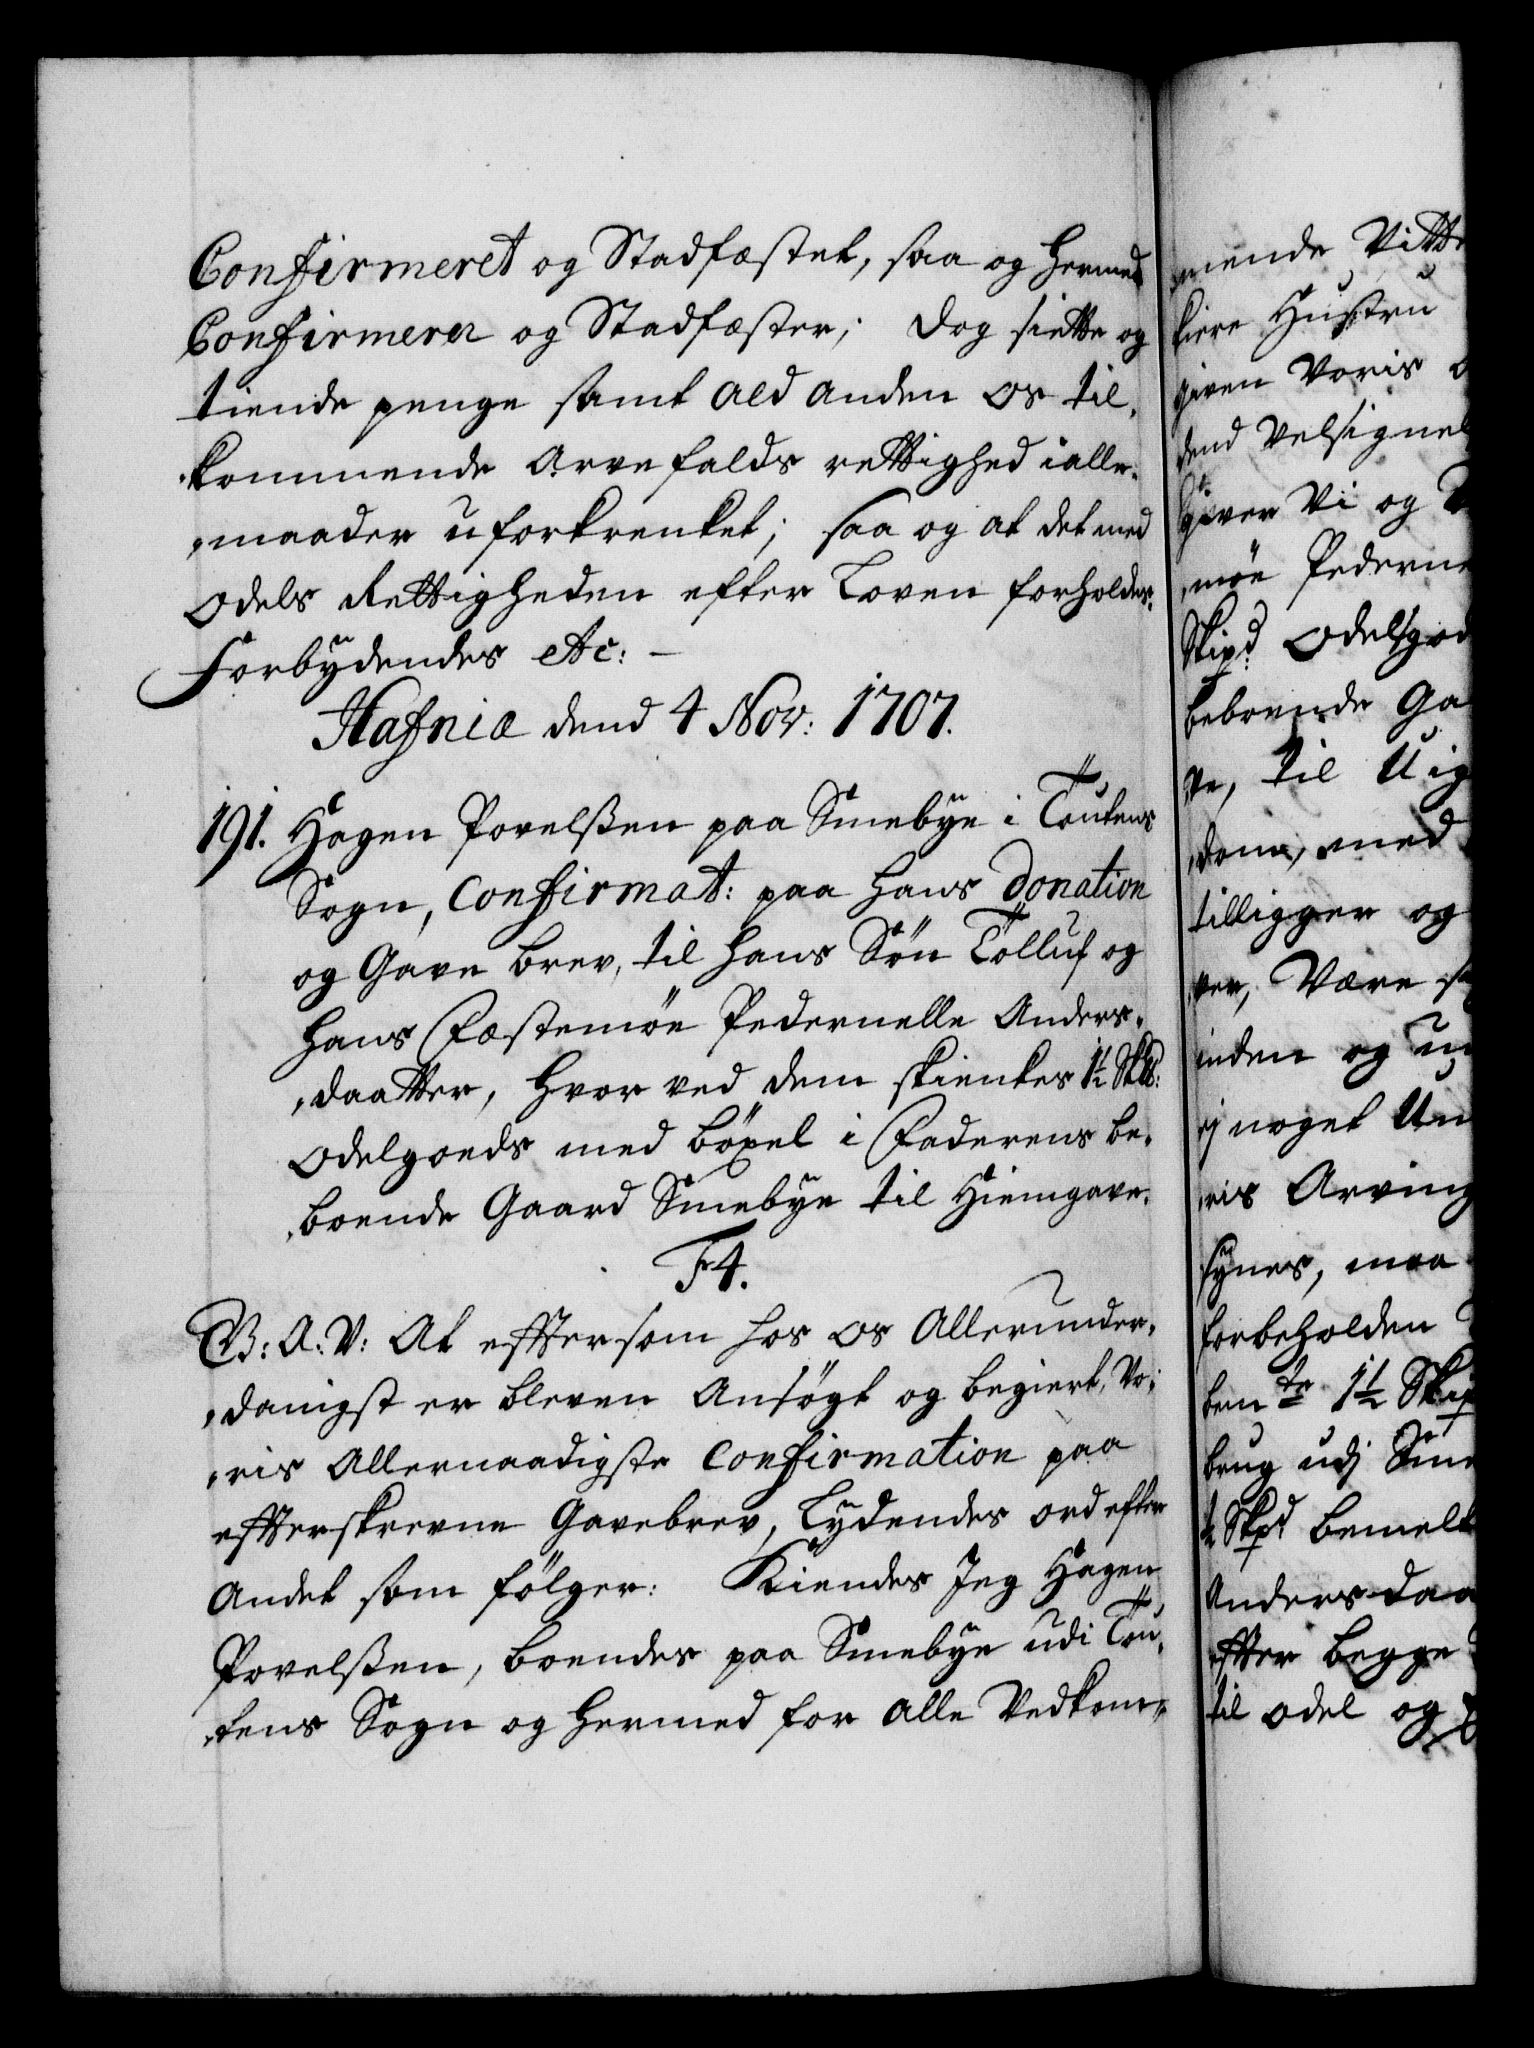 Confirmeret og Stadfæstet, saa og hermed
Confirmerer og Stadfæster; Dog siette og
tiende penge samt ald anden Os til,
,kommende Arvefalds rettighed i alle,
,maader uforkrenket; saa og at det med
Odels Rettigheden efter Loven forholdes.
Forbydendes etc: –
Hafniæ dend 4 Nov: 1707.
191. Hagen Povelßen paa Sinebye i Toutens
Sogn, Confirmat: paa hans Donation
og Gave brev, til hans Søn Tolluf og
hans Fæstemøe Pedernelle Anders,
,daatter, hvor ved dem skienkes 1½ Sk℔:
Odelgoeds med bøxel i Faderens be,
,boende Gaard Sinebye til Hiemgave.
F4.
G: A: V: At efftersom hos os Allerunder,
,danigst er bleven Ansøgt og begiert, Vo,
,ris Allernaadigste Confirmation paa
effterskrevne Gavebrev, Lydendes ord efter
Andet som følger: Kiendes Jeg Hagen
Povelßen, boendes paa Sinebye udi Tou,
,tens Sogn og hermed for alle Vedkom,,
,mende Vitte
kiere Hustru
given Voris
dend Velsignel
giver Vi og
,møe Pederne
Skipd Odelsgod
beboende Ga
ve, til Uig
,dom, med
tilligger og
ver, Være
inden og u
ej noget Un
,ris Arving
synes, maa
forbeholden
ben te 1½ Skip
brug udj Sine
½ Skpd bemelt
Andersdaa
effter begge
til odel og